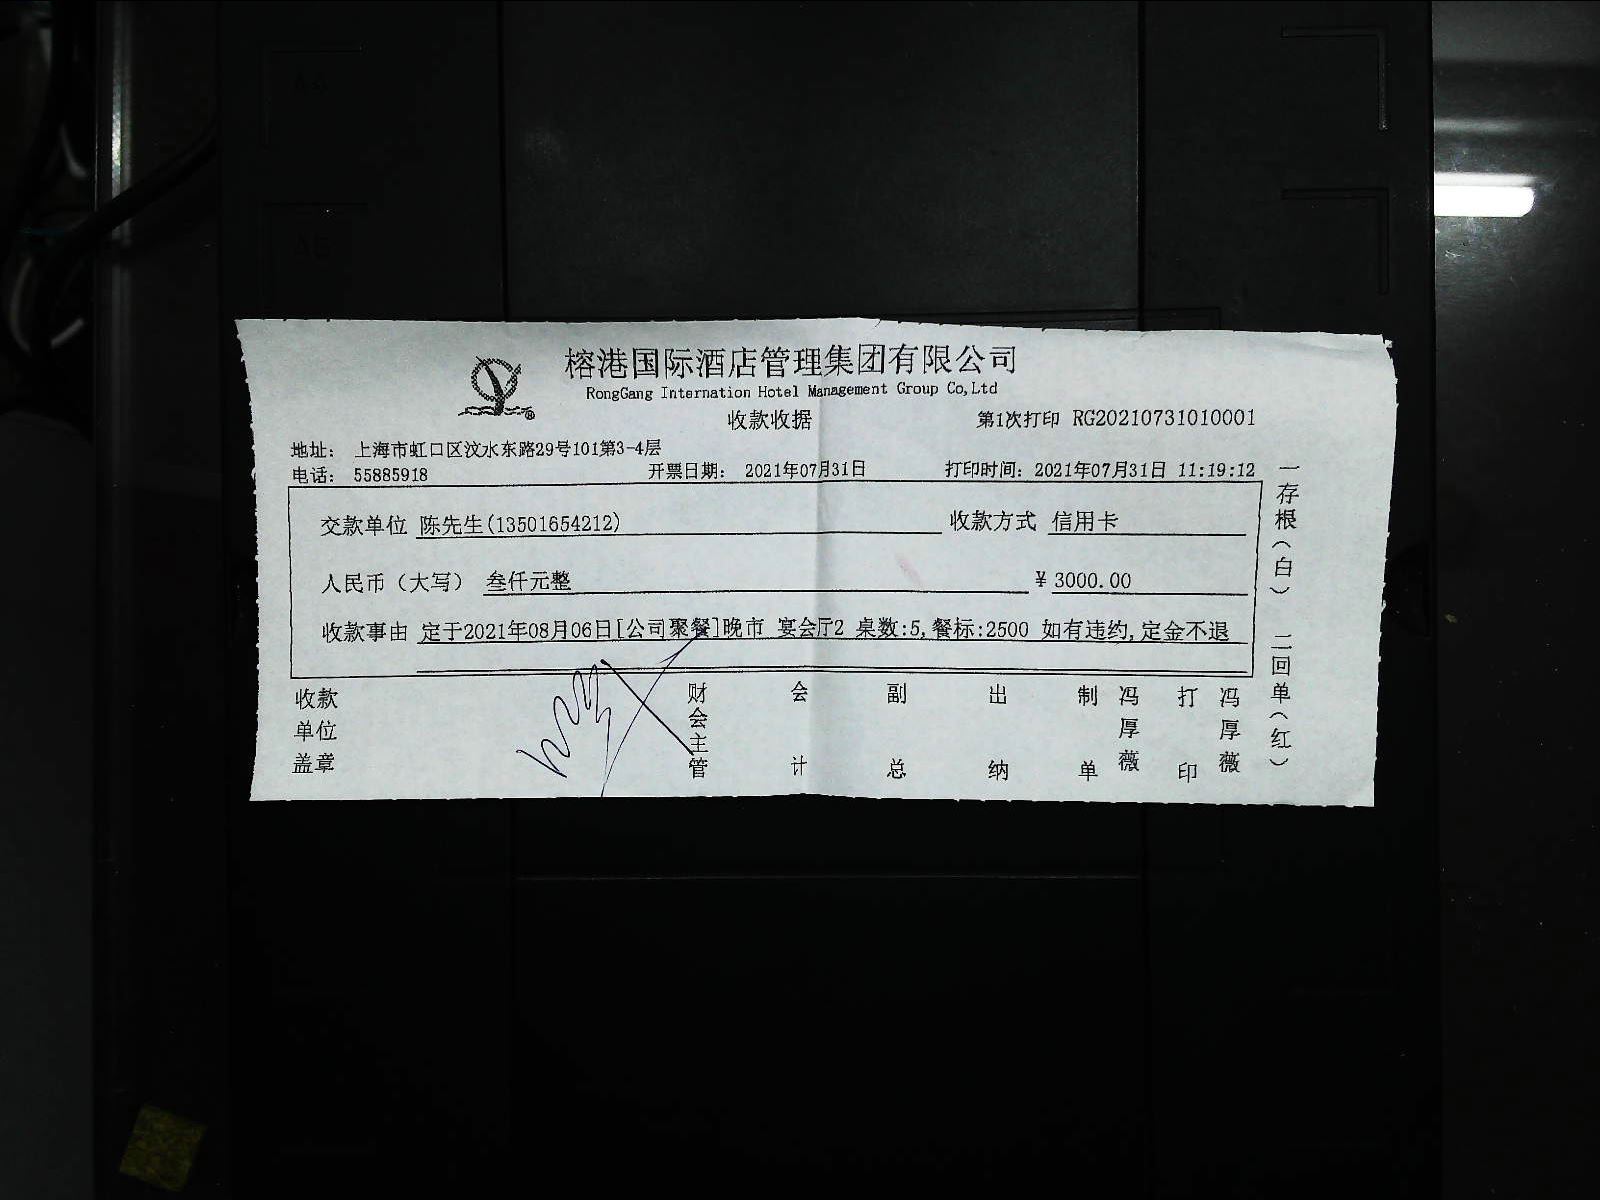 榕港国际酒店管理集团有限公司
RongGang Internation Hotel Management Group Co,Ltd
收款收据 第1次打印 RG20210731010001
地址： 上海市虹口区汶水东路29号101第3-4层
电话： 55885918 开票日期： 2021年07月31日 打印时间：2021年07月31日 11:19:12
交款单位 陈先生(13501654212) 收款方式 信用卡
人民币（大写） 叁仟元整 ¥ 3000.00
收款事由 定于2021年08月06日[公司聚餐]晚市 宴会厅2 桌数:5,餐标:2500 如有违约,定金不退
收款单位盖章 财会主管 会计 副总 出纳 制单 冯厚薇 打印 冯厚薇
一存根（白） 二回单（红）